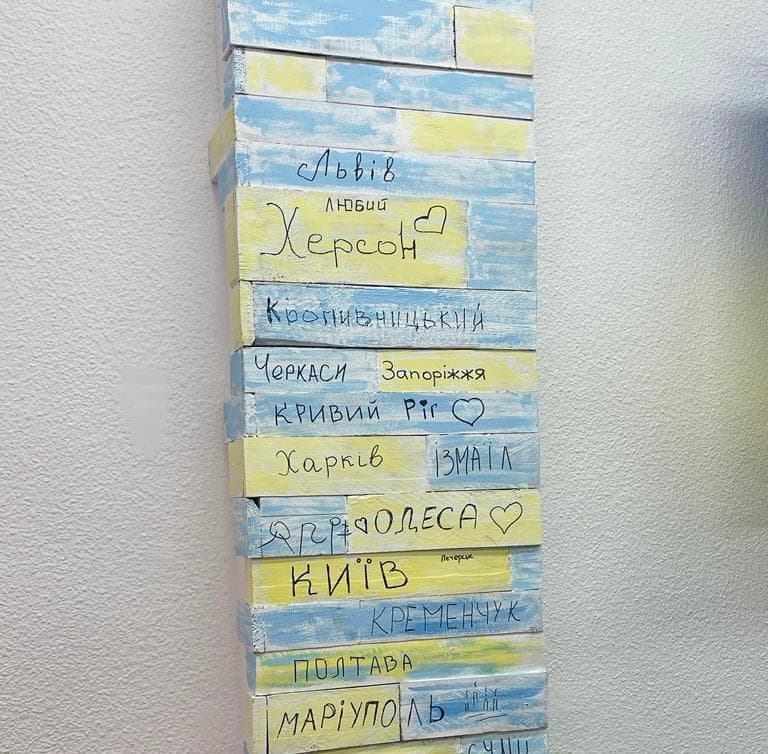 Львів
любий
Херсон
Кропивницький
Черкаси Запоріжжя
Кривий Ріг
Харків Ізмаїл
ОДЕСА
Печерськ
КИЇВ
КРЕМЕНЧУК
ПОЛТАВА
МАРІУПОЛЬ
СУМИ